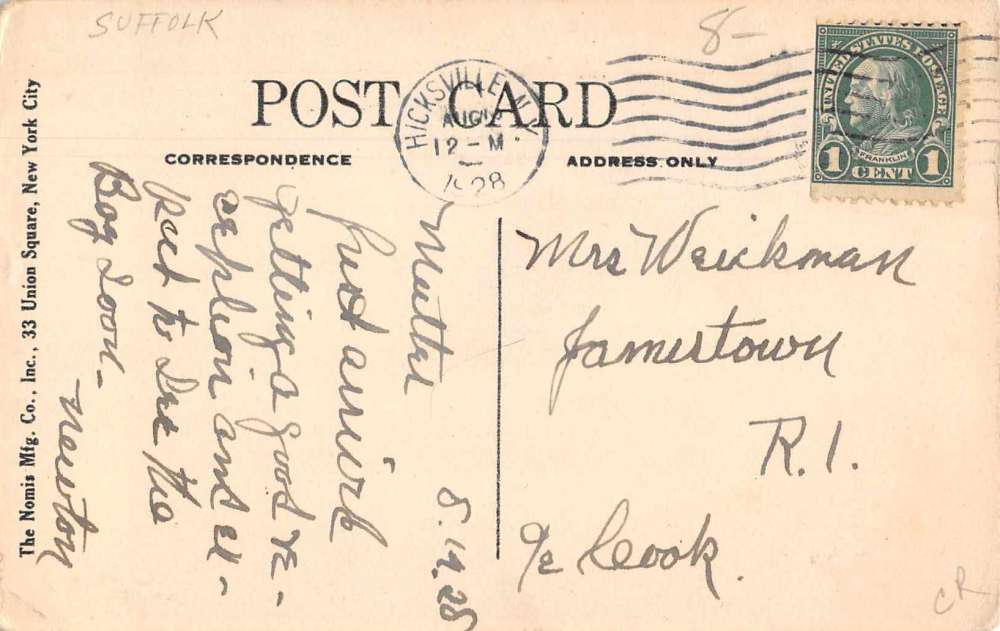 SUFFOLK
8-
POST CARD
CORRESPONDENCE
ADDRESS ONLY
HICKSVILLE, N.Y.
AUG
12-M
1928
UNITED STATES POSTAGE
FRANKLIN
1 CENT 1
The Nomis Mfg. Co., Inc., 33 Union Square, New York City
8.19.28
just arrived
getting a good re-
and ex-
pect to see the
Boy soon-
Newton
Mrs Weickman
Jamestown
R.I.
c/o Cook.
CR